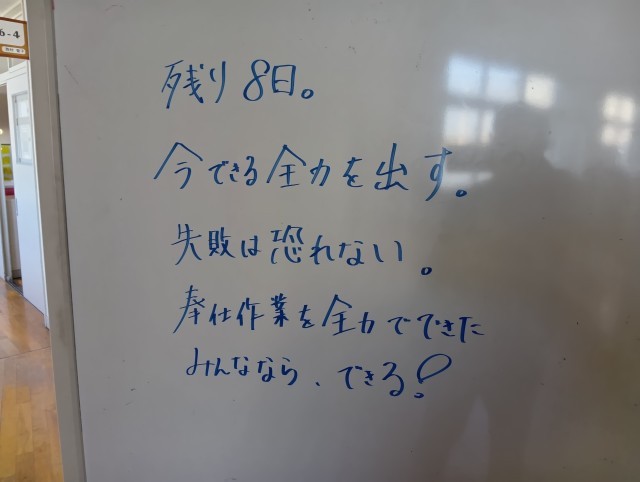 6-4
残り8日。
今できる全力を出す。
失敗は恐れない。
奉仕作業を全力でできた
みんななら、できる!